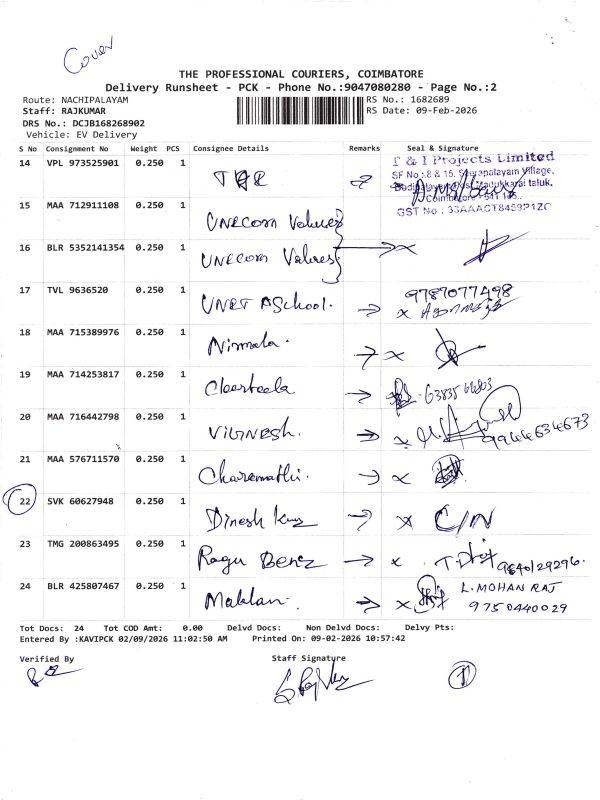 Cover
THE PROFESSIONAL COURIERS, COIMBATORE
Delivery Runsheet - PCK - Phone No.:9047080280 - Page No.:2
Route: NACHIPALAYAM
Staff: RAJKUMAR
DRS No.: DCJB168268902
Vehicle: EV Delivery
RS No.: 1682689
RS Date: 09-Feb-2026
S No Consignment No Weight PCS Consignee Details Remarks Seal & Signature
14 VPL 973525901 0.250 1
T & I Projects Limited
SF No :8 & 15, Palayam Village,
Madukkarai taluk,
Coimbatore
GST No : 33AAACT8459P1ZO
15 MAA 712911108 0.250 1 UNECOM Valures
16 BLR 5352141354 0.250 1 UNECOM Valures → x
17 TVL 9636520 0.250 1 School. → x
9787077498
18 MAA 715389976 0.250 1 Nirmala. → x
19 MAA 714253817 0.250 1 →
20 MAA 716442798 0.250 1 VIGNESH. → x
9944634673
21 MAA 576711570 0.250 1 Charamathi. → x
22 SVK 60627948 0.250 1 Dinesh → x C/N
23 TMG 200863495 0.250 1 Ragu Benz → x 9640129296.
24 BLR 425807467 0.250 1 → x L. MOHAN RAJ
9750440029
Tot Docs: 24 Tot COD Amt: 0.00 Delvd Docs: Non Delvd Docs: Delvy Pts:
Entered By :KAVIPCK 02/09/2026 11:02:50 AM Printed On: 09-02-2026 10:57:42
Verified By Staff Signature